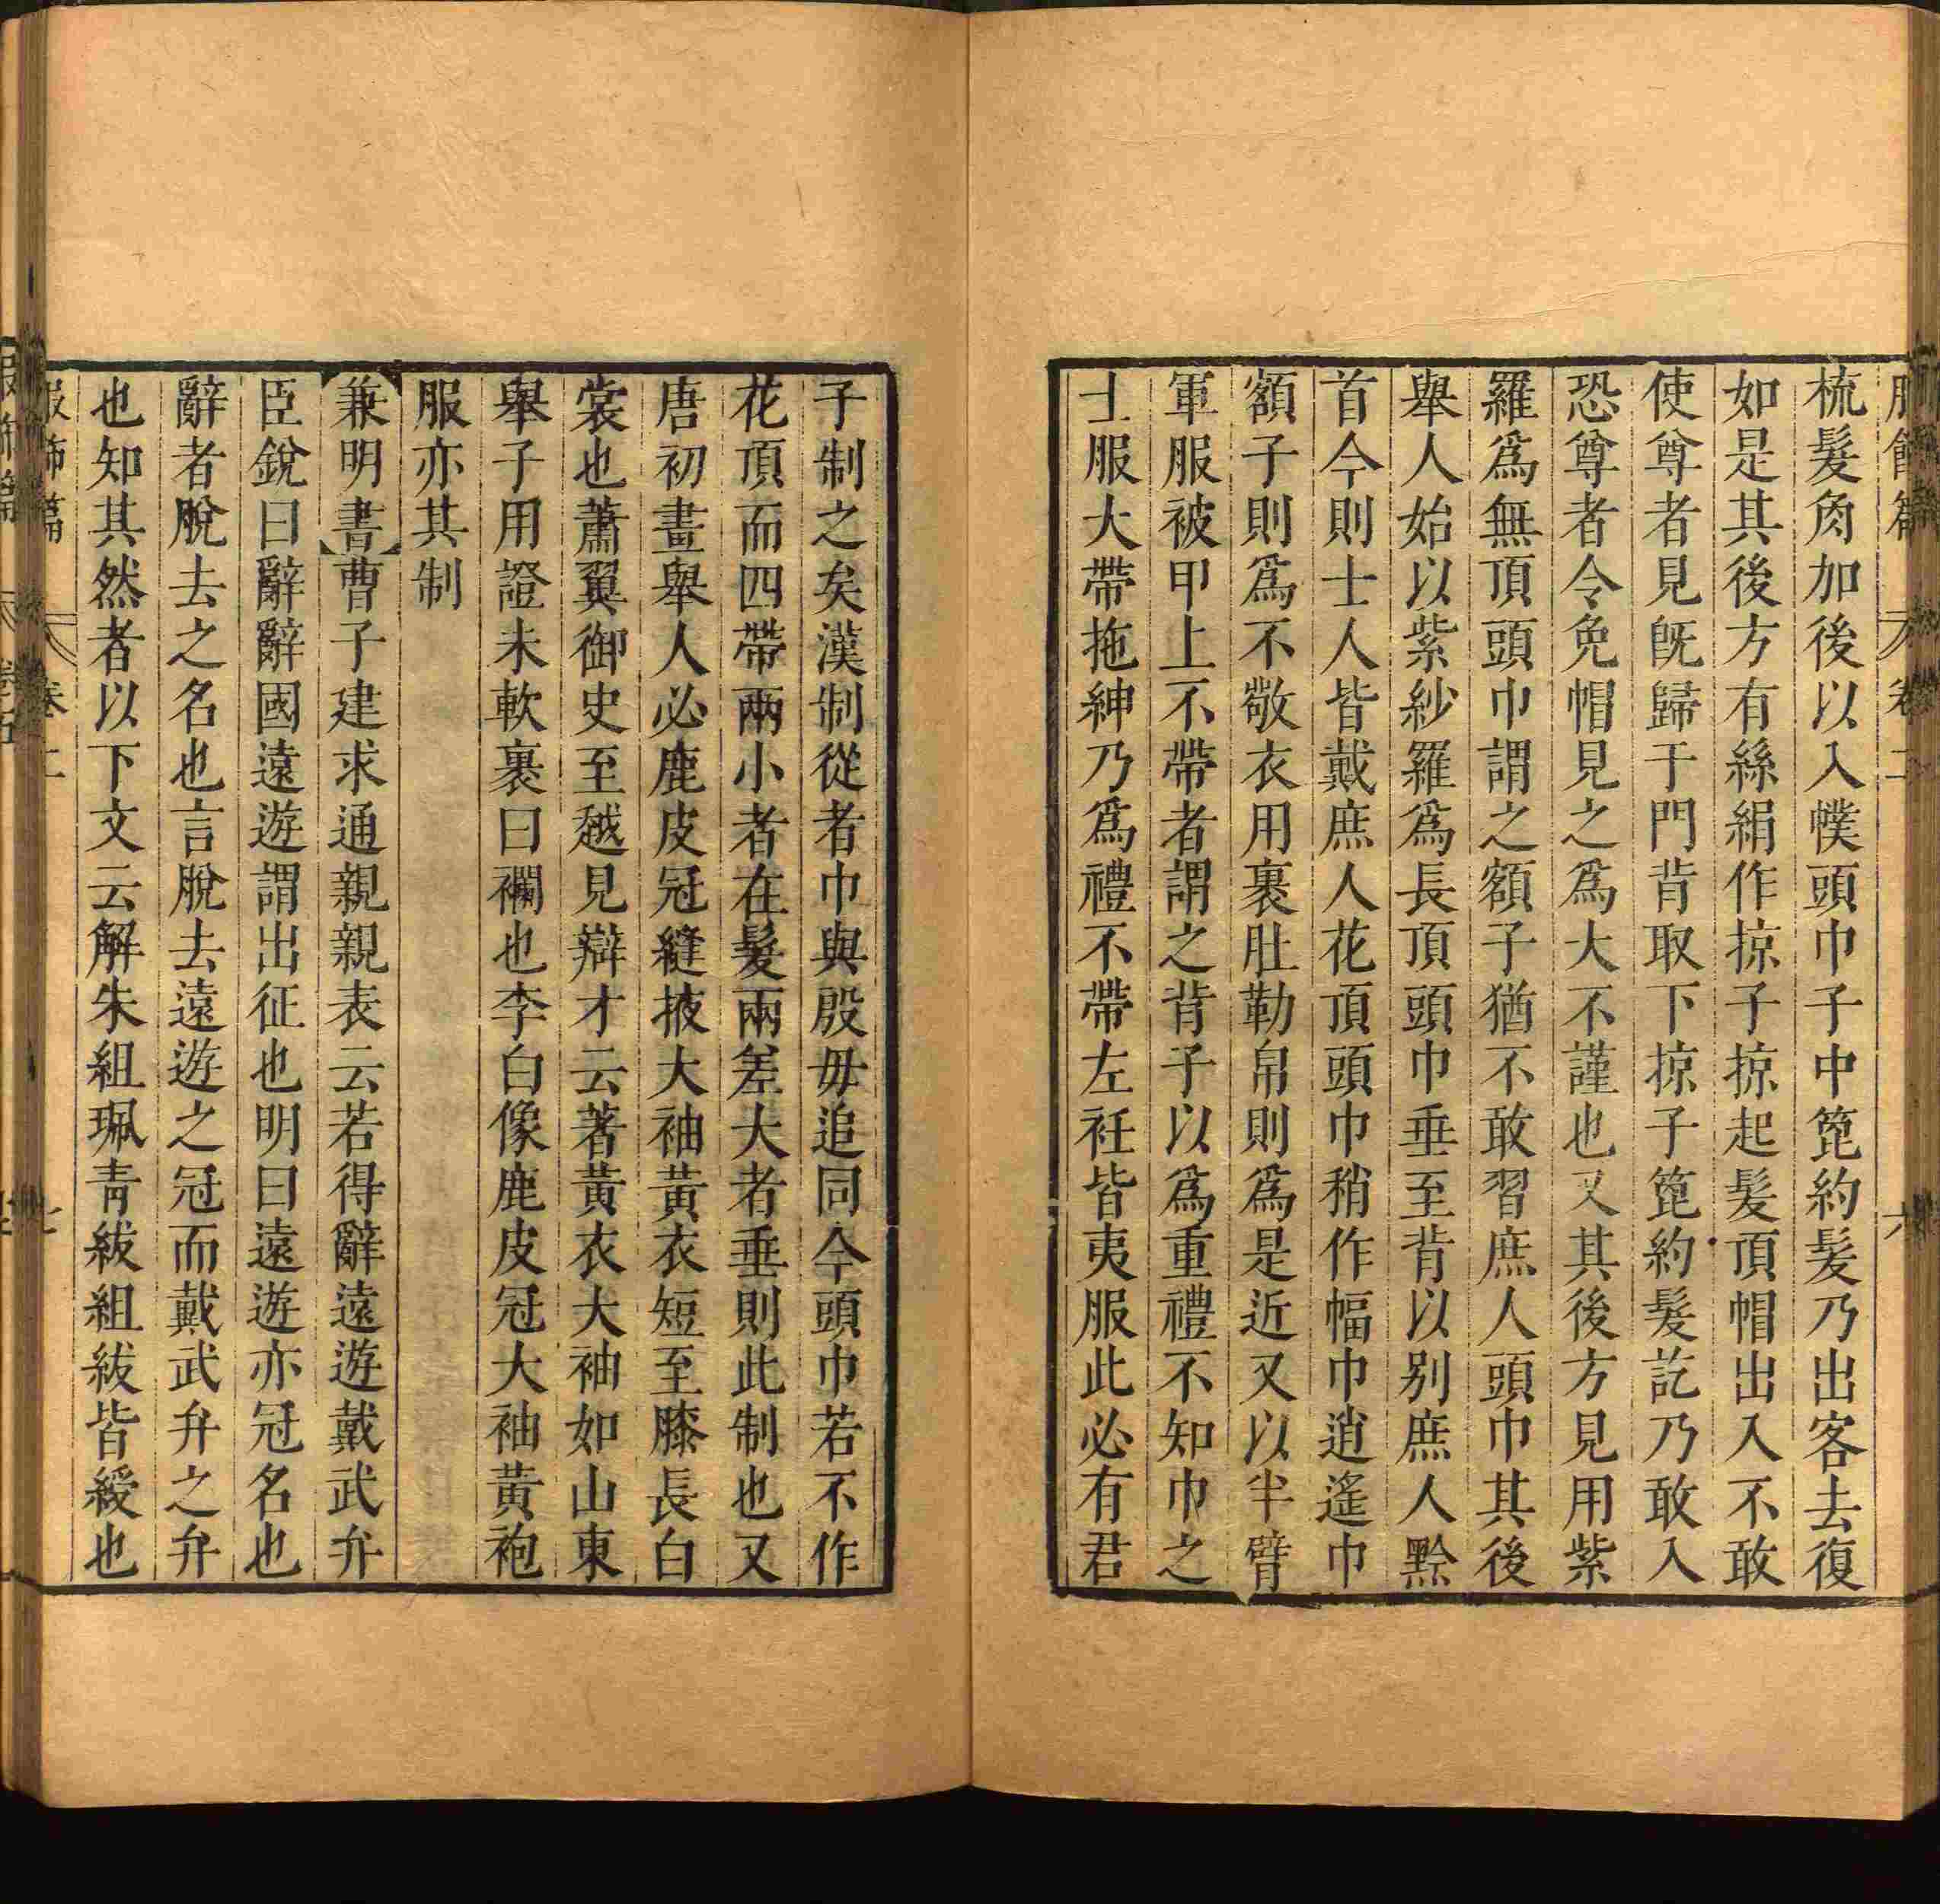 服飾篇 卷二 六
梳髮角加後以入幞頭巾子中篦約髮乃出客去復
如是其後方有絲絹作掠子掠起髮頂帽出入不敢
使尊者見旣歸于門背取下掠子篦約髮訖乃敢入
恐尊者令免帽見之爲大不謹也又其後方見用紫
羅爲無頂頭巾謂之額子猶不敢習庶人頭巾其後
舉人始以紫紗羅爲長頂頭巾垂至背以別庶人黔
首今則士人皆戴庶人花頂頭巾稍作幅巾逍遙巾
額子則爲不敬衣用裹肚勒帛則爲是近又以半臂
軍服被甲上不帶者謂之背子以爲重禮不知巾之
士服大帶拖紳乃爲禮不帶左衽皆夷服此必有君
子制之矣漢制從者巾與殷毋追同今頭巾若不作
花頂而四帶兩小者在髮兩差大者垂則此制也又
唐初畫舉人必鹿皮冠縫掖大袖黃衣短至膝長白
裳也蕭翼御史至越見辯才云著黃衣大袖如山東
舉子用證未軟裹曰襴也李白像鹿皮冠大袖黃袍
服亦其制
兼明書曹子建求通親親表云若得辭遠遊戴武弁
臣銳曰辭辭國遠遊謂出征也明曰遠遊亦冠名也
辭者脫去之名也言脫去遠遊之冠而戴武弁之弁
也知其然者以下文云解朱組珮靑紱組紱皆綬也
服飾篇 卷二 七